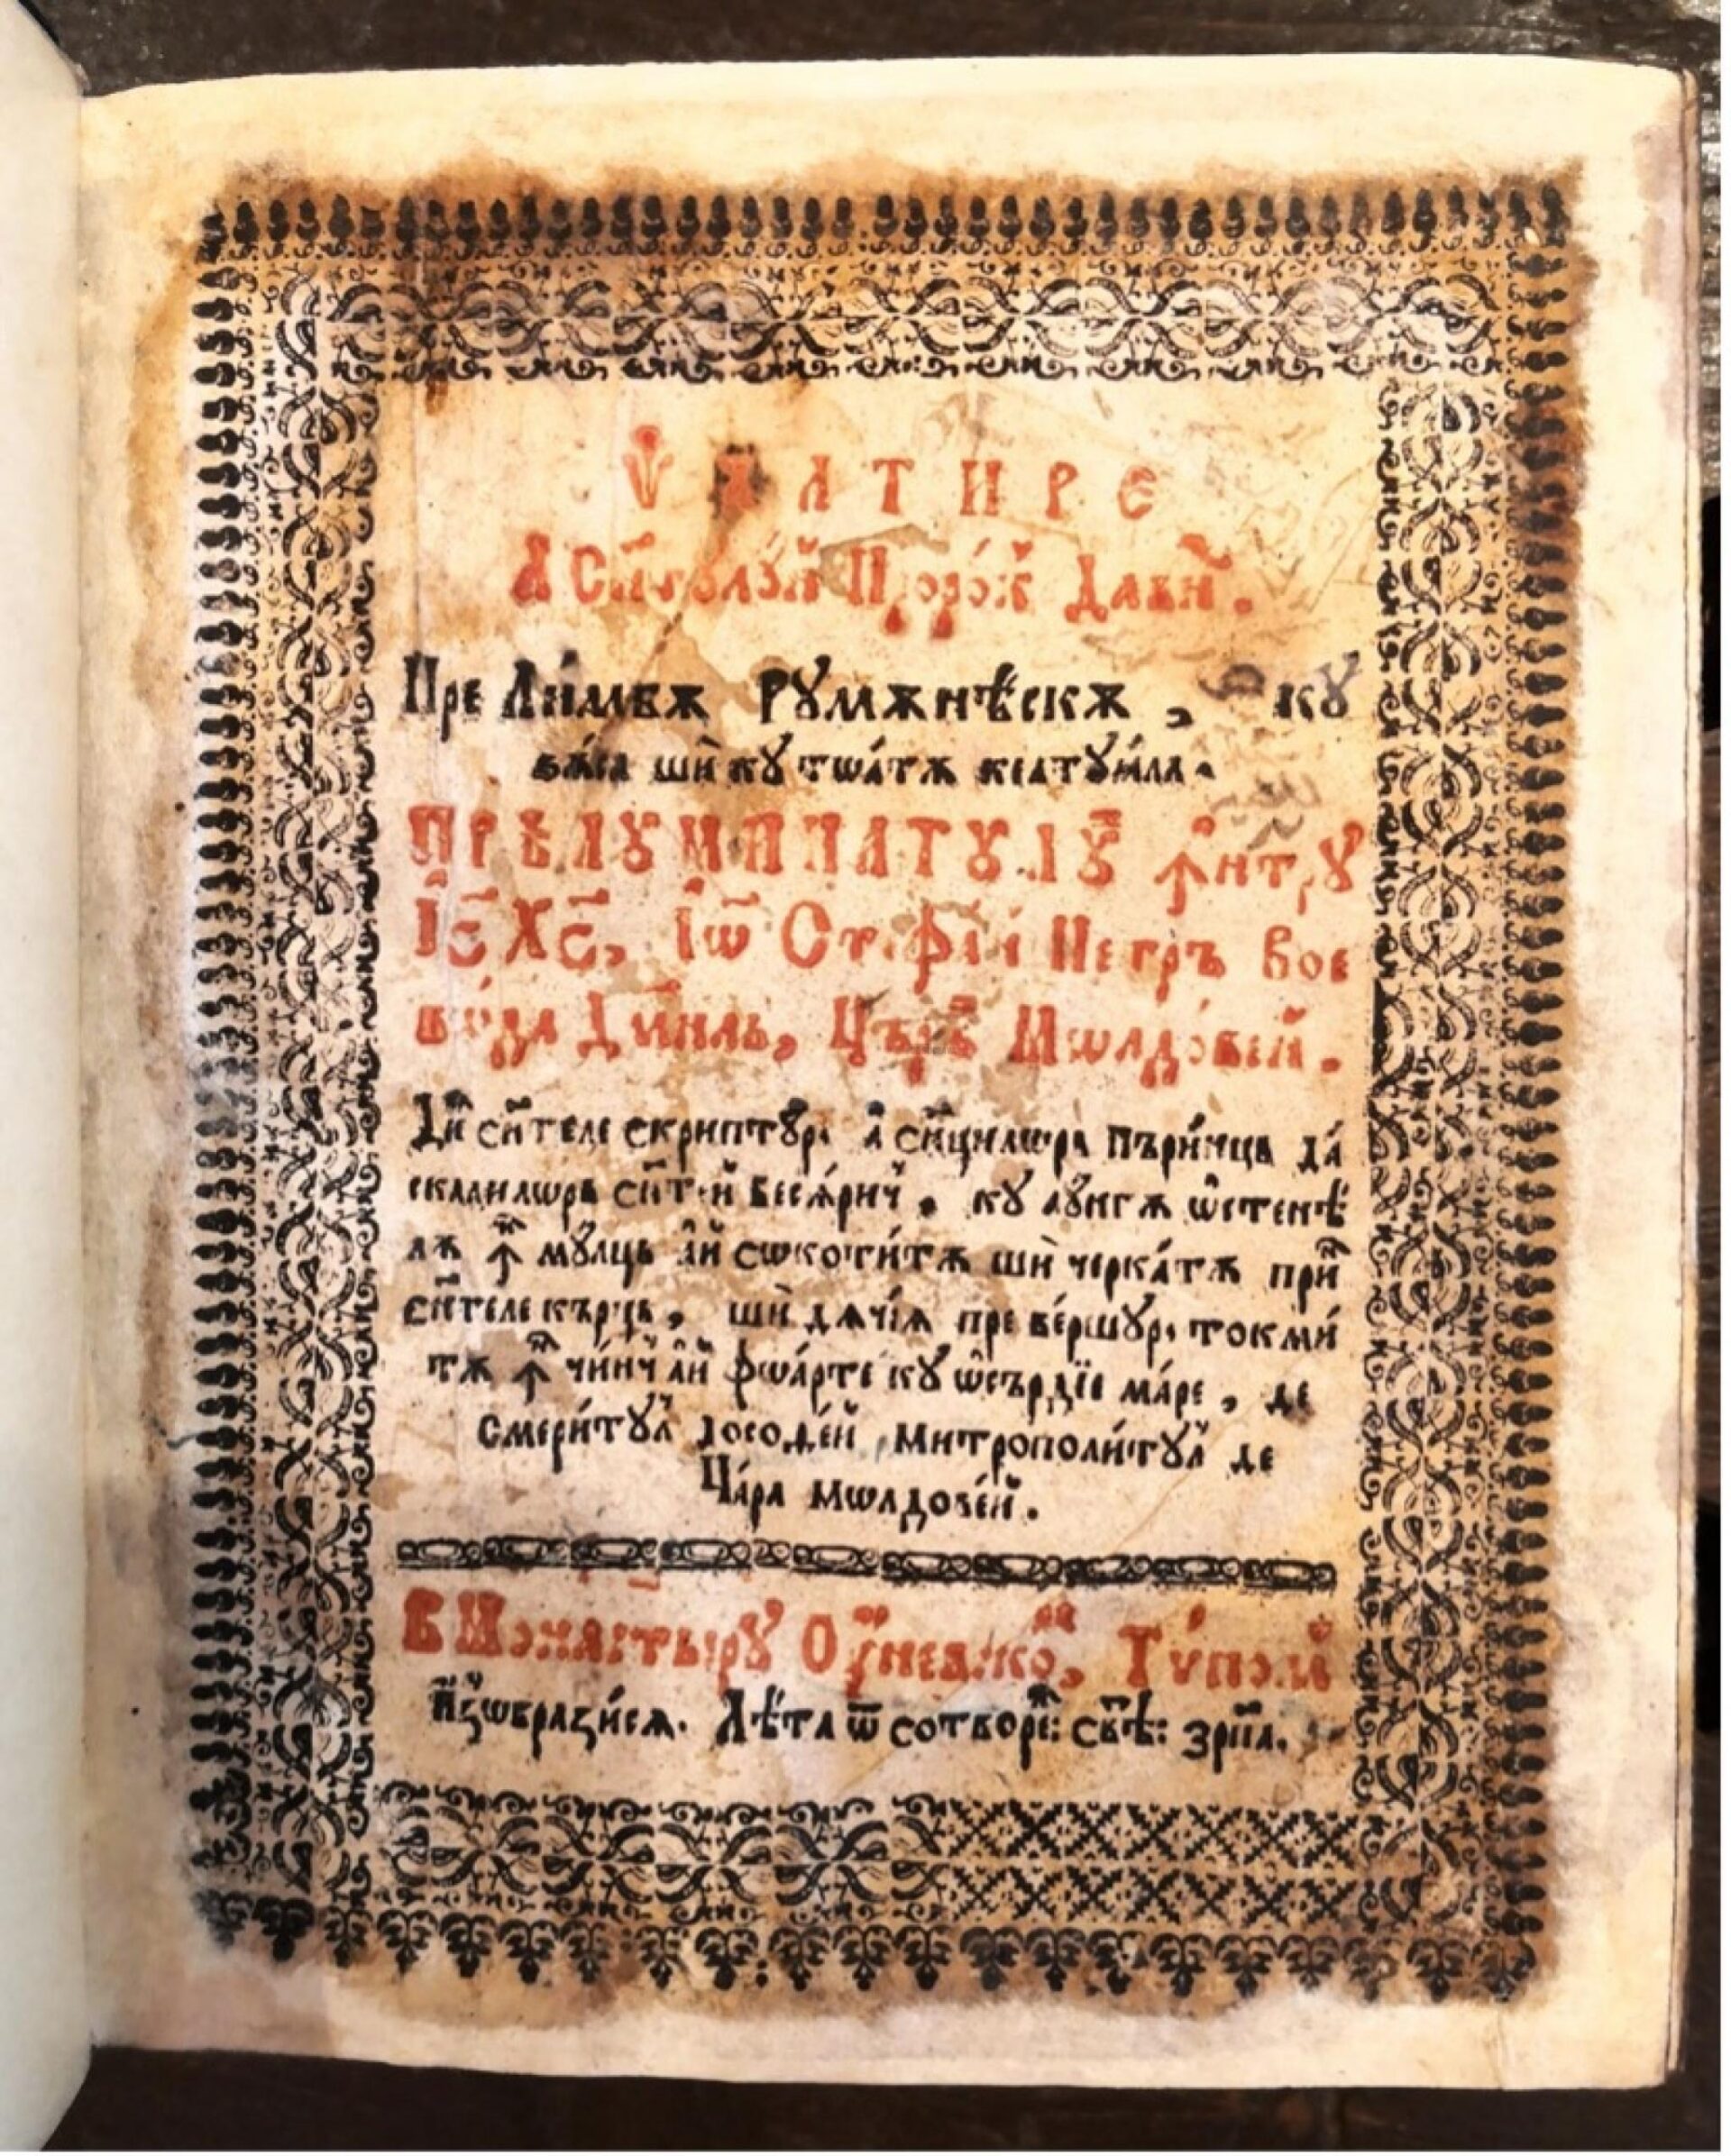 Ѱ А Л Т И Р Е
А Сн҃тулуй Прⷪро́к Дави҃д.
Пре Ли́мбѫ Рꙋмѫнѣскѫ , кꙋ
ши̂ кꙋ тѡа́тѫ
ПРѢЛꙊМИНАТꙊЛꙊЙ ꙟ̂нтрꙋ
І҆с҃ Хс҃, І҆ѡ҃ Стефан Петръ Вое
во́да Домнꙋль, Църѣй Мѡлдо́вей.
Ди́н сн҃теле скриптꙋрй а̂ сн҃цилѡрь пъри́нць да́
скалилѡрь сн҃тей бесѧ́ричй , кꙋ лꙋнгѫ ѡ̂стенѣ
лѫ ꙟ мꙋлць а̂нй сѡкоти́тѫ ши̂ черка́тѫ прин
сн҃теле кърць , ши̂ дѧчі́ѧ пре ве́ршꙋрй токми́
тѫ ꙟ чи́нчй а̂нй фѡа́рте кꙋ ѡ̂сърдїе ма́ре , де
Смери́тꙋл досоѳе́й , Митрополи́тꙋл де
Ца́ра мѡлдове́й .
В Монастырꙋ Оуневско, Ти́пом
И҆зѡбрази́сѧ . Лѣ́та ѿ сотворе: свѣ: зрп҃а .